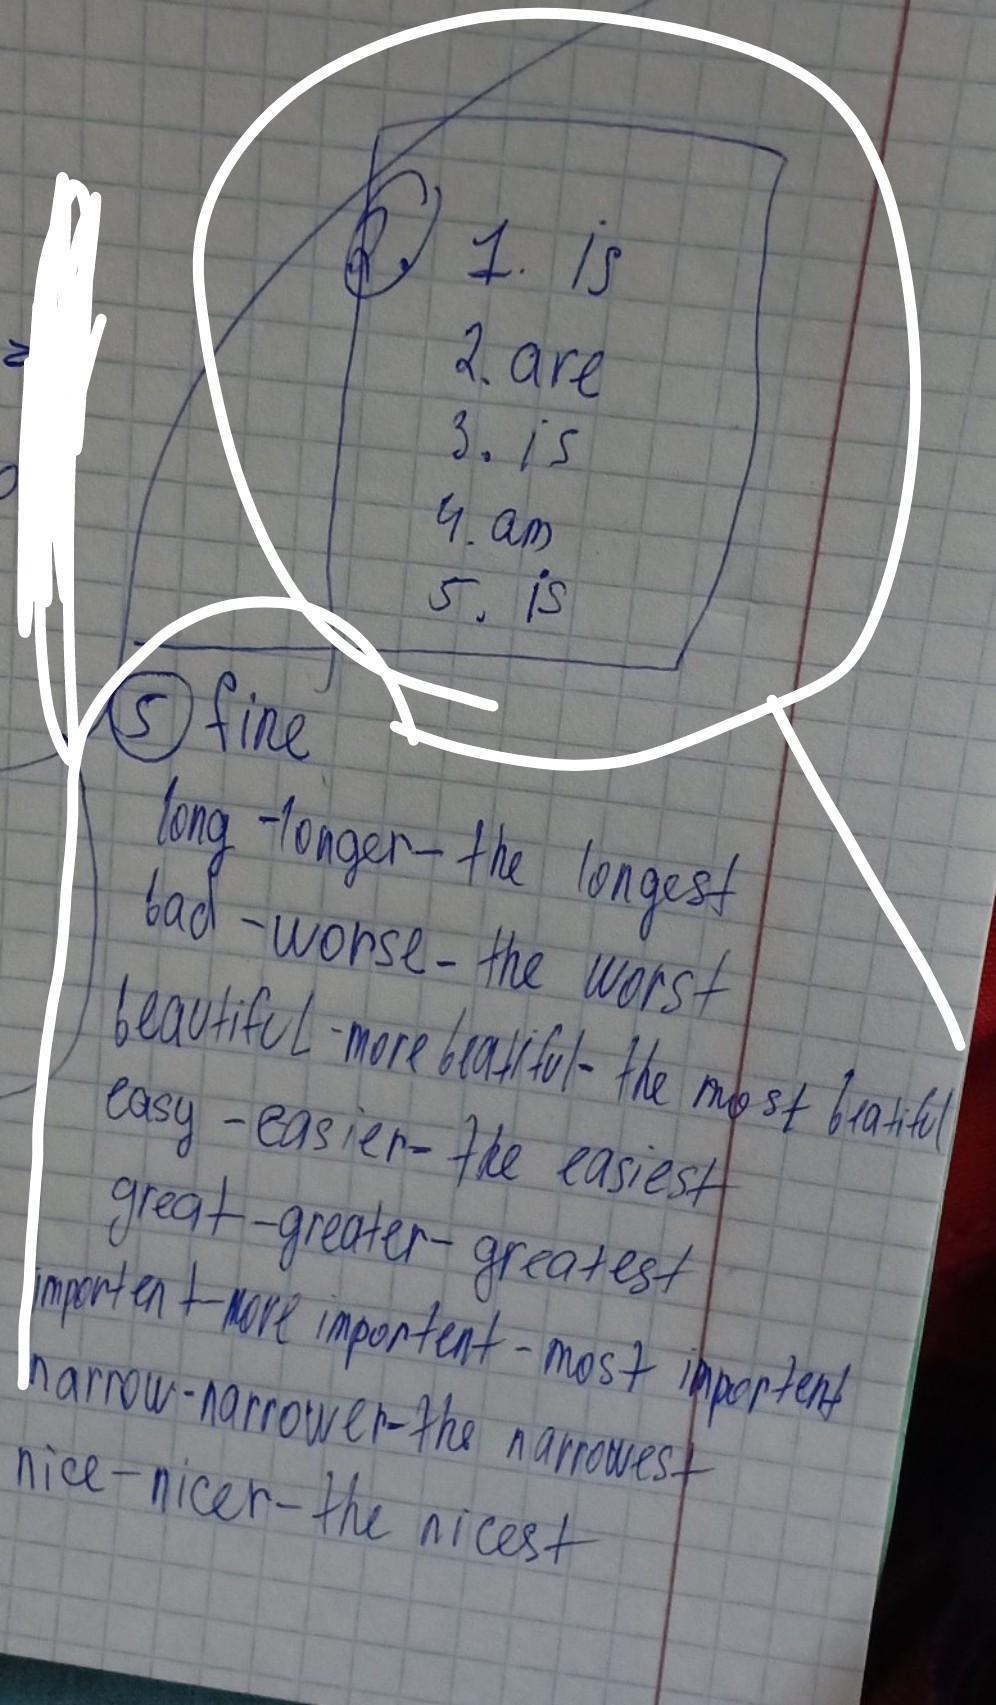 2. 1. is
2. are
3. is
4. am
5. is
5 fine
long - longer - the longest
bad - worse - the worst
beautiful - more beatiful - the most beatiful
easy - easier - the easiest
great - greater - greatest
importent - more importent - most importent
narrow - narrower - the narrowest
nice - nicer - the nicest